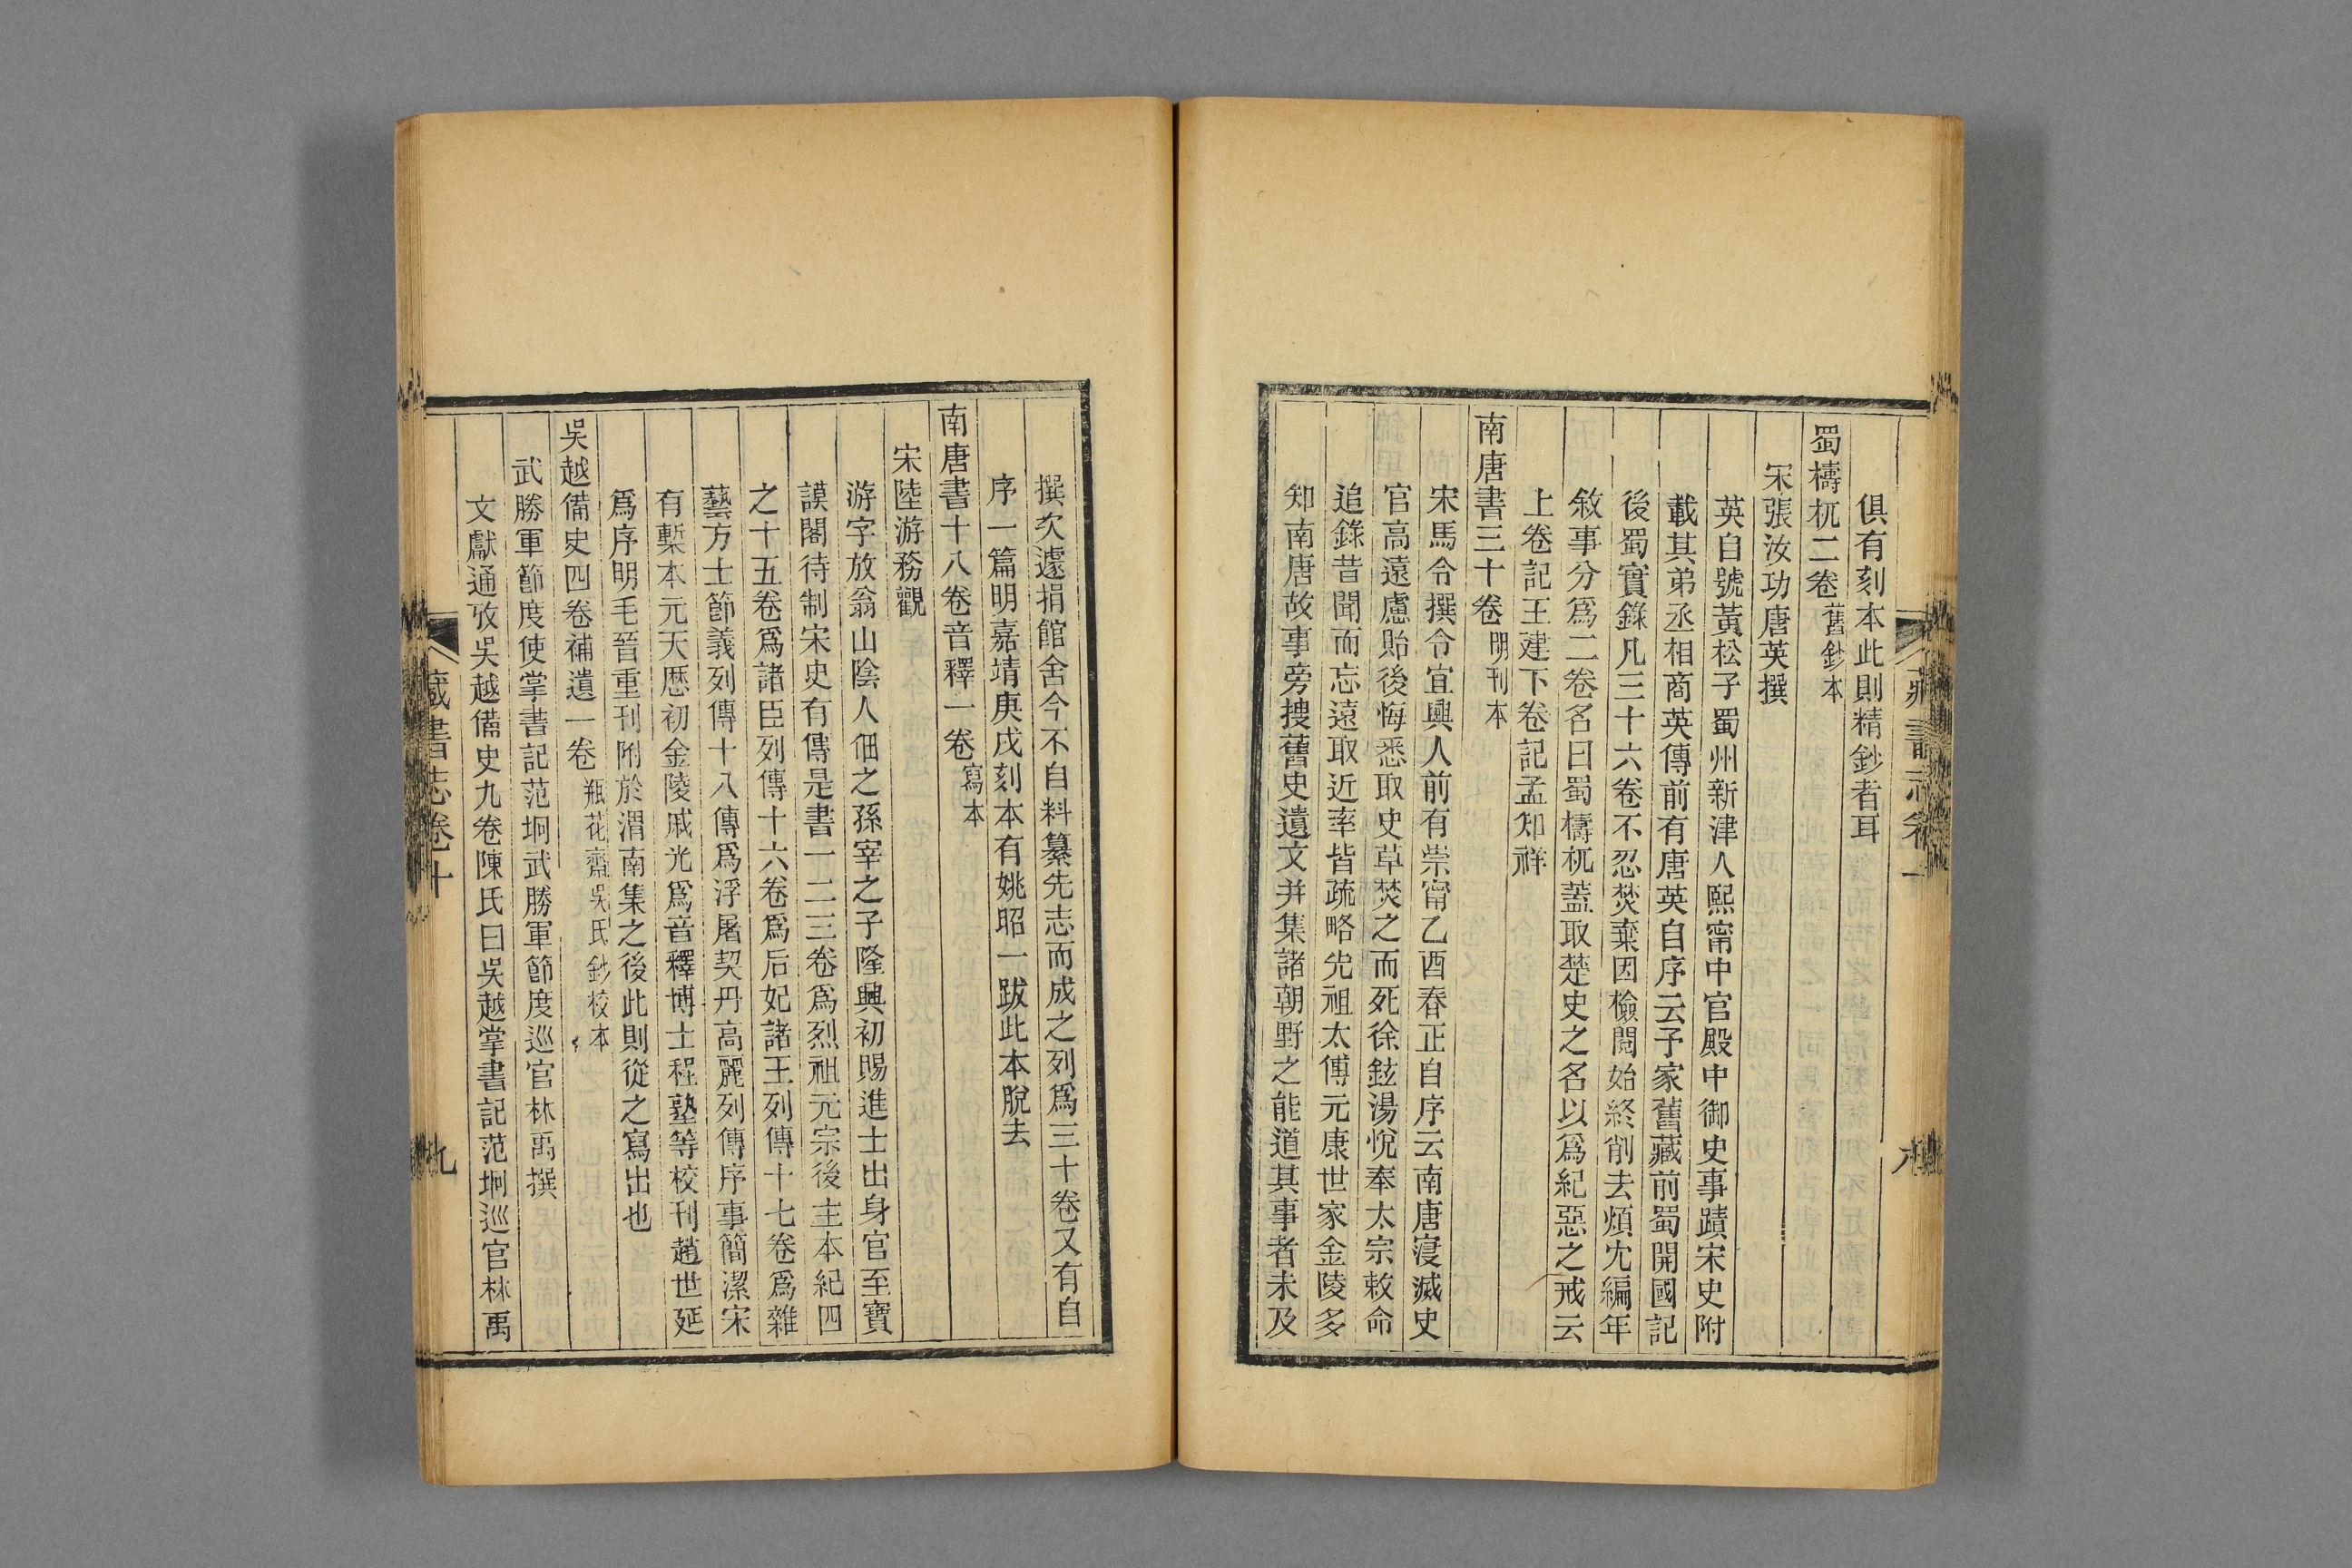 俱有刻本此則精鈔者耳
蜀檮杌二卷舊鈔本
宋張汝功唐英撰
英自號黃松子蜀州新津人熙甯中官殿中御史事蹟宋史附
載其弟丞相商英傳前有唐英自序云予家舊藏前蜀開國記
後蜀實錄凡三十六卷不忍焚棄因檢閱始終削去煩冗編年
敘事分爲二卷名曰蜀檮杌蓋取楚史之名以爲紀惡之戒云
上卷記王建下卷記孟知祥
南唐書三十卷明刊本
宋馬令撰令宜興人前有崇甯乙酉春正自序云南唐寖滅史
官高遠慮貽後悔悉取史草焚之而死徐鉉湯悅奉太宗敕命
追錄昔聞而忘遠取近率皆疏略先祖太傅元康世家金陵多
知南唐故事旁搜舊史遺文并集諸朝野之能道其事者未及
撰次遽捐館舍今不自料纂先志而成之列爲三十卷又有自
序一篇明嘉靖庚戌刻本有姚昭一跋此本脫去
南唐書十八卷音釋一卷寫本
宋陸游務觀
游字放翁山陰人佃之孫宰之子隆興初賜進士出身官至寶
謨閣待制宋史有傳是書一二三卷爲烈祖元宗後主本紀四
之十五卷爲諸臣列傳十六卷爲后妃諸王列傳十七卷爲雜
藝方士節義列傳十八傳爲浮屠契丹高麗列傳序事簡潔宋
有槧本元天歷初金陵戚光爲音釋博士程塾等校刊趙世延
爲序明毛晉重刊附於渭南集之後此則從之寫出也
吳越備史四卷補遺一卷瓶花齋吳氏鈔校本
武勝軍節度使掌書記范坰武勝軍節度巡官林禹撰
文獻通攷吳越備史九卷陳氏曰吳越掌書記范坰巡官林禹
藏書志卷十
九